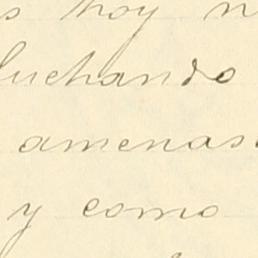 s hoy n
luchando
amenas
y como